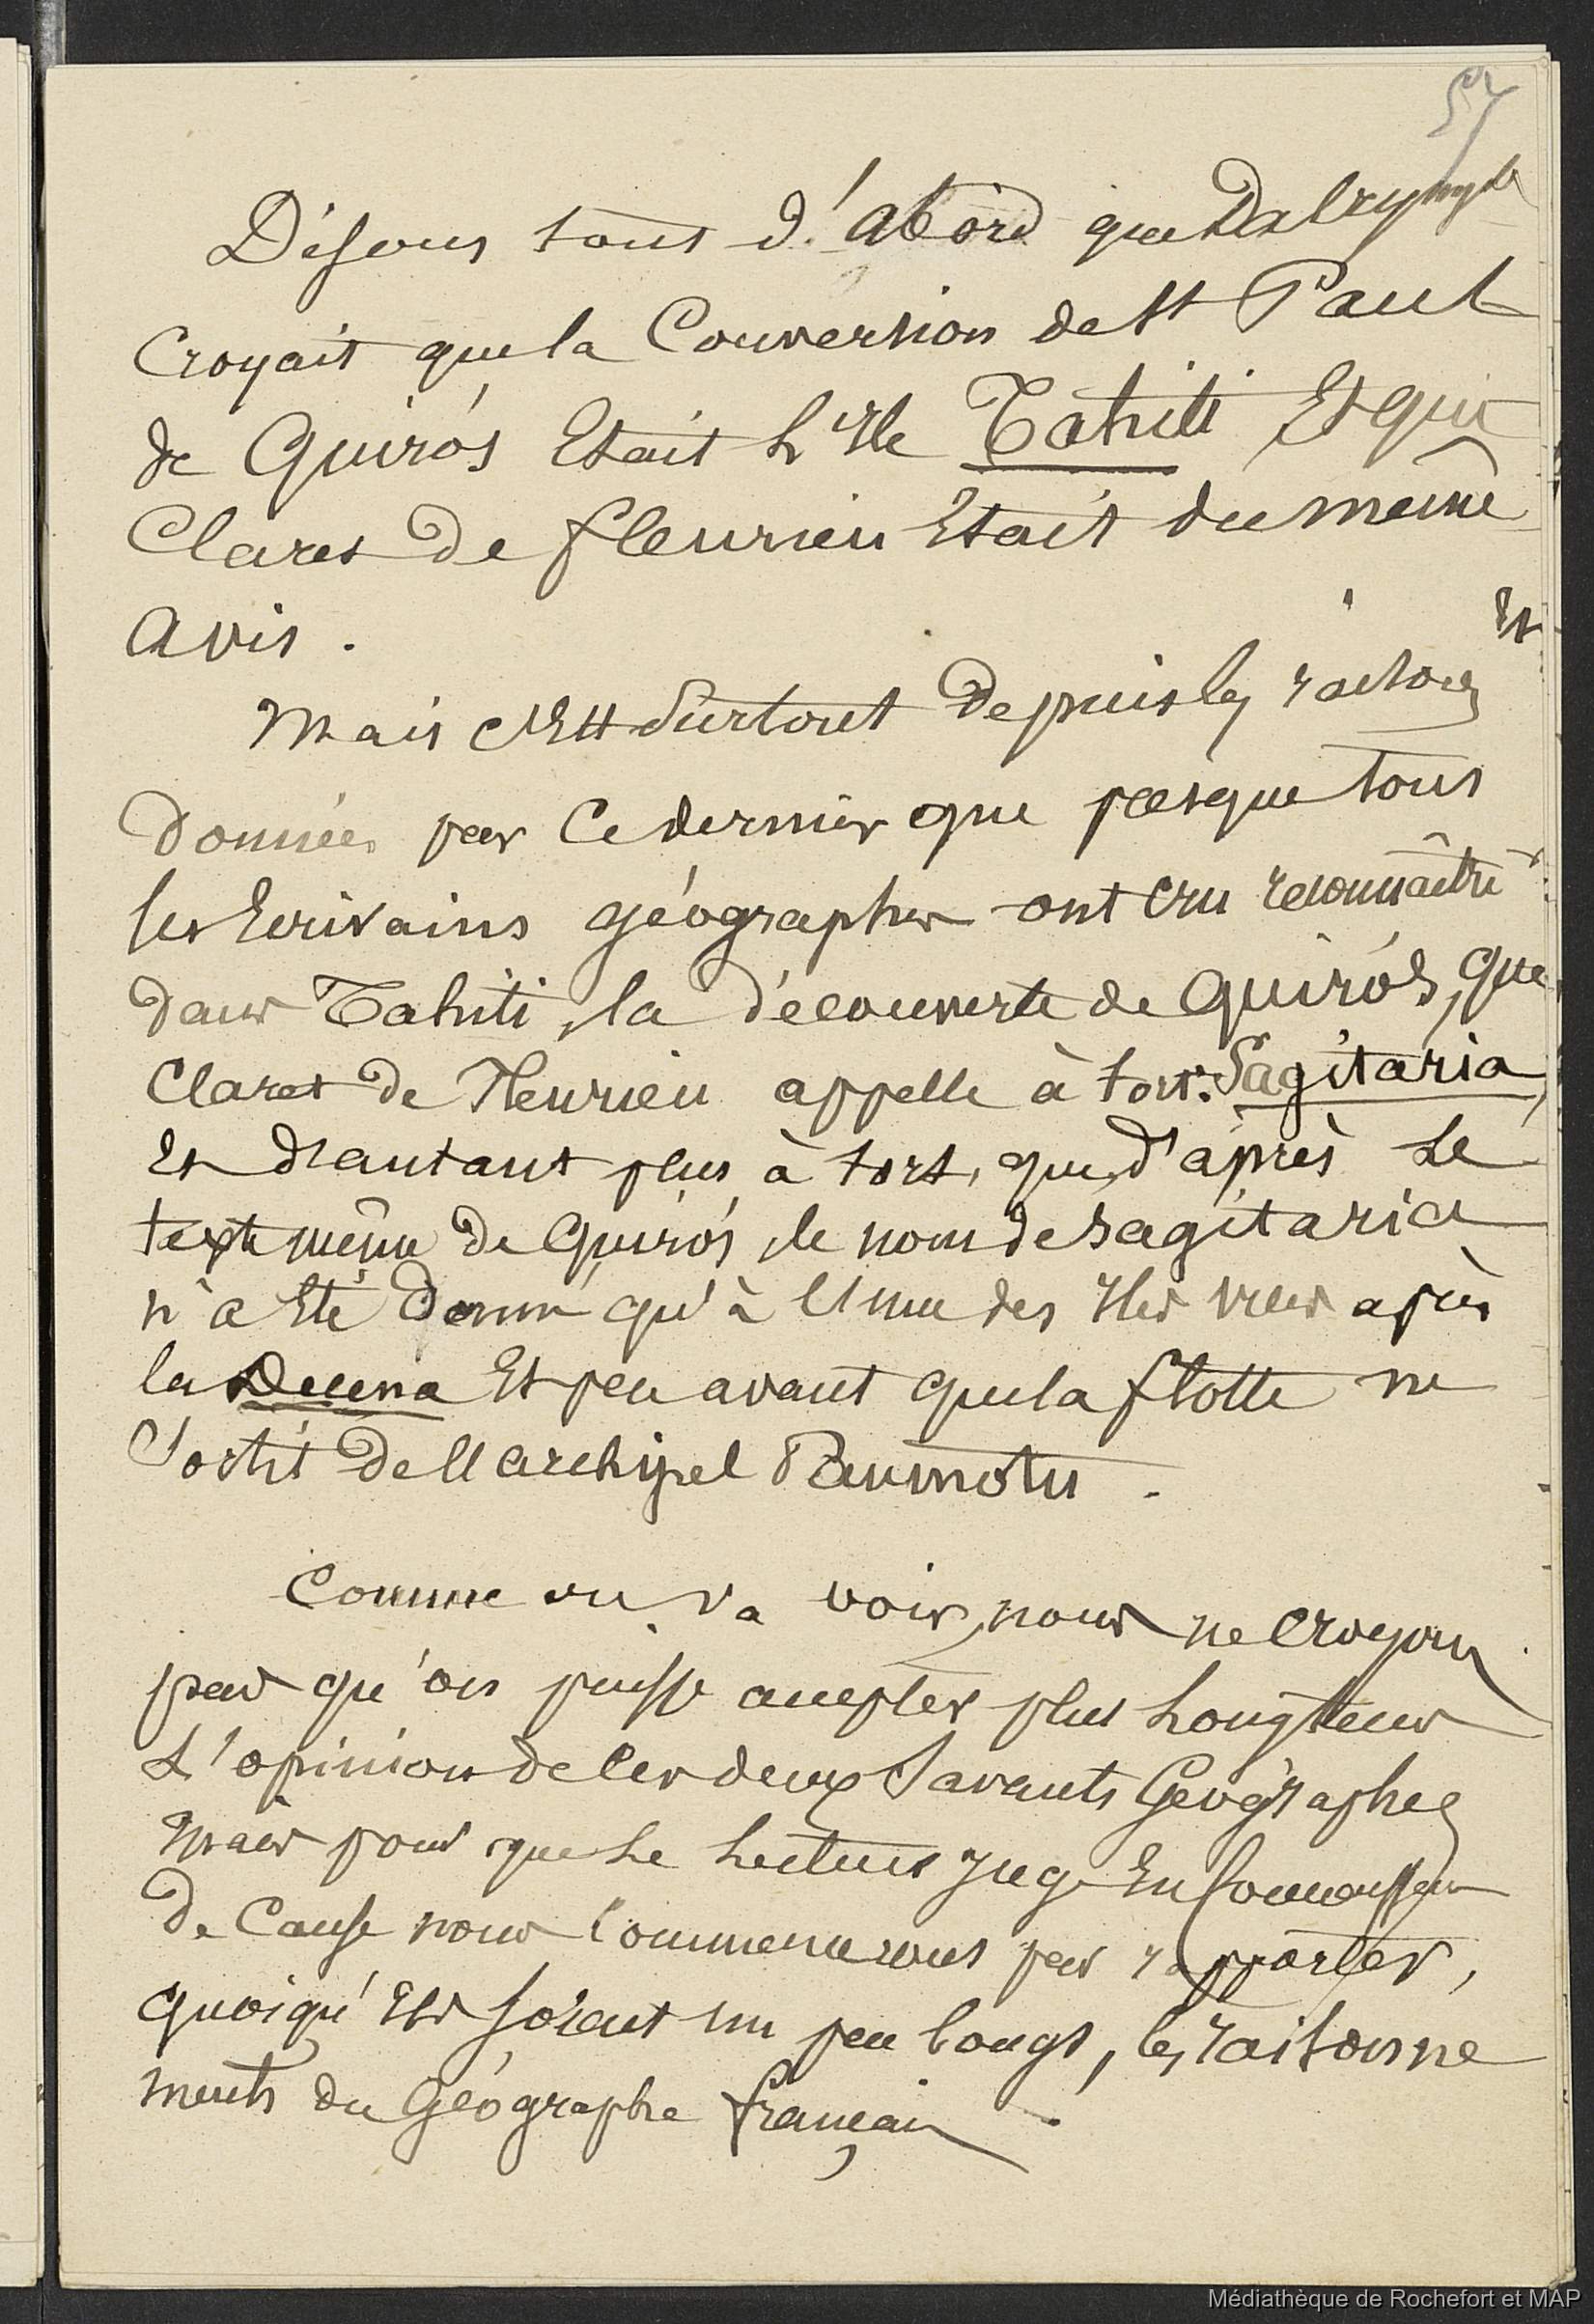 57
Disons tout d'abord que Dalrymple
Croyait que la Conversion de St Paul
de Quirós Etait l'Ile Tahiti Et que
Claret de fleurieu Etait du même
avis.
Et
Mais c'Est Surtout depuis les raisons
données par Ce dernier que presque tous
les Ecrivains géographes ont cru reconnaître
dans Tahiti, la découverte de Quirós, que
Claret de Fleurieu appelle à tort Sagitaria,
Et d'autant plus à tort, que, d'après Le
texte même de Quirós, le nom de Sagitaria
n'a Eté donné qu'à l'une des Iles vues après
la Decena Et peu avant que la flotte ne
Sortit de l'archipel Paumotu.
Comme on va voir, nous ne Croyons
pas qu'on puisse accepter plus Longtems
L'opinion de Ces deux Savants Géographes
Mais pour que Le Lecteur Juge En Connaissance
de Cause nous Commencerons par rapporter,
quoiqu'Ils soient un peu longs, les raisonne
ments du Géographe français.
Médiathèque de Rochefort et MAP